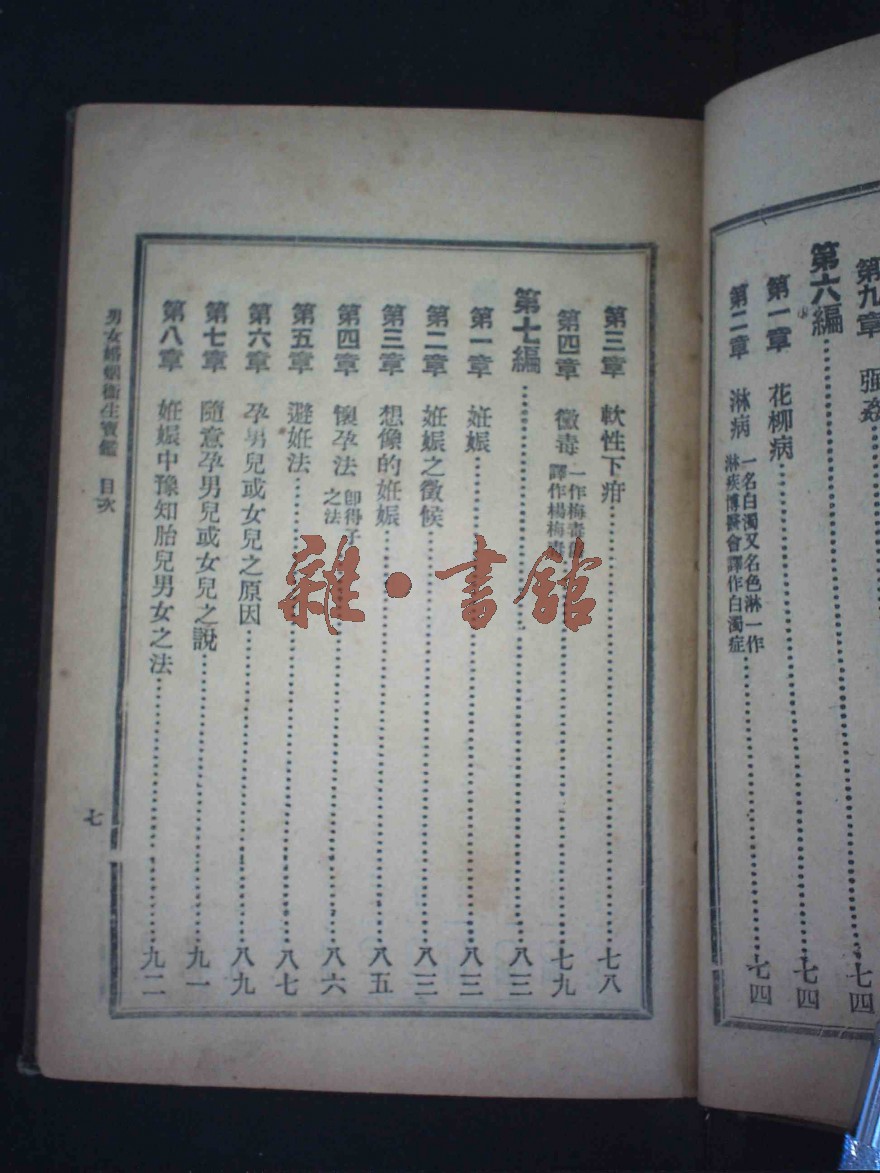 第九章 强姦……七四
第六編……七四
第一章 花柳病……七四
第二章 淋病 一名白濁又名色淋一作淋疾博醫會譯作白濁症……七四
第三章 軟性下疳……七八
第四章 黴毒 一作梅毒 譯作楊梅毒……七九
第七編……八三
第一章 姙娠……八三
第二章 姙娠之徵候……八三
第三章 想像的姙娠……八五
第四章 懷孕法 卽得子之法……八六
第五章 避姙法……八七
第六章 孕男兒或女兒之原因……八九
第七章 隨意孕男兒或女兒之說……九一
第八章 姙娠中豫知胎兒男女之法……九二
男女婚姻衞生寶鑑 目次
七
雜·書館